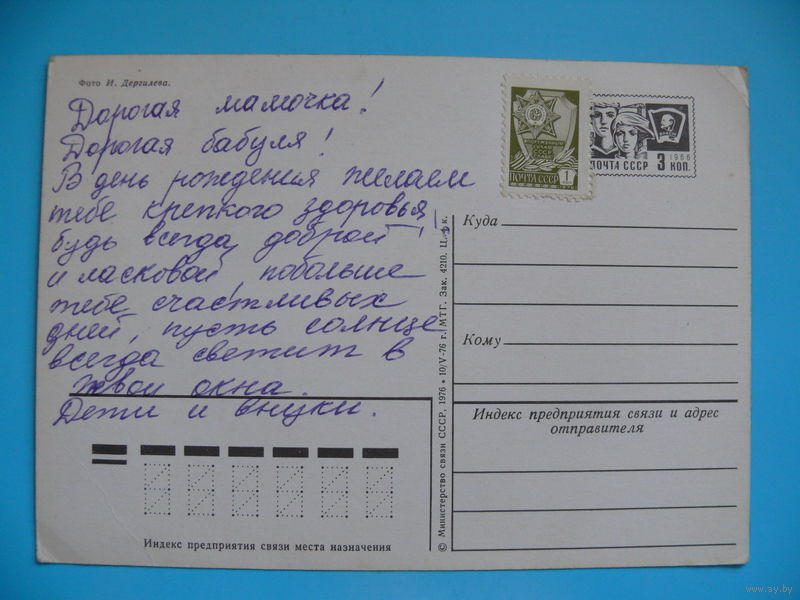 Фото И. Дергилева.
Дорогая мамочка!
Дорогая бабуля!
В день рождения желаем
тебе крепкого здоровья,
будь всегда доброй
и ласковой, побольше
тебе счастливых
дней, пусть солнце
всегда светит в
твои окна.
Дети и внуки.
Индекс предприятия связи места назначения
© Министерство связи СССР, 1976 • 10/V-76 г. МТГ. Зак. 4210. Ц. 4 к.
ПОЧТА СССР 1
1966
ПОЧТА СССР 3 КОП.
Куда
Кому
Индекс предприятия связи и адрес
отправителя
www.ay.by